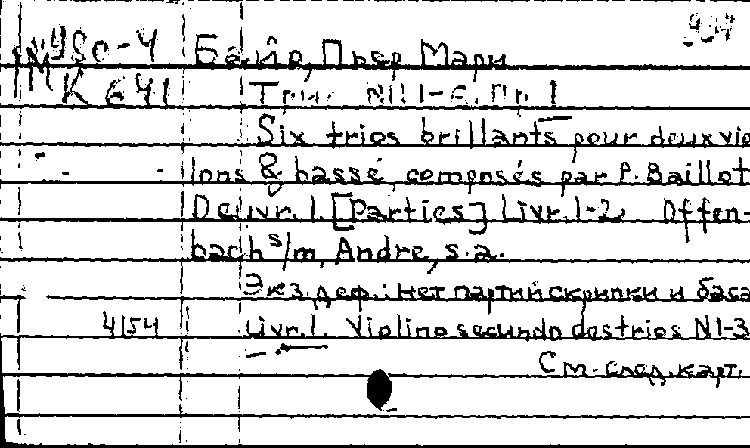 М980-4 Байо, Пьер Мари
МК 641 Трио. N1-6. Op. 1
Six trios brillants pour deux vio
lons & basse, composés par P. Baillot
Oeuvr. 1. [Parties] Livr. 1-2. Offen-
bach s/m, Andre, s.a.
Экз. деф.: нет партий скрипки и баса
4154 Livr. 1. Violino secundo des trios N1-3
См. след. карт.